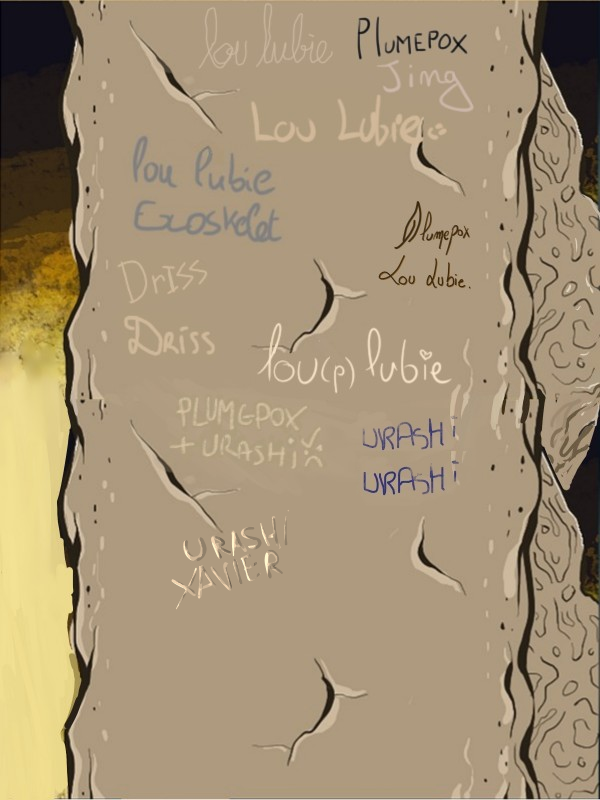 lou lubie
PLUMEPOX
Jing
Lou Lubie
lou lubie
Exoskelet
Plumepox
Lou Lubie.
DrISS
Driss
lou(p) lubie
PLUMEPOX
+ URASHi
URASHi
URASHi
URASHi
XAVIER